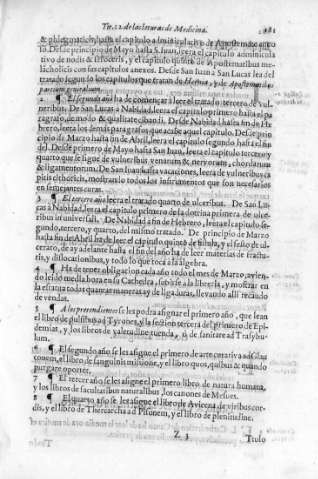 Tit. 22. de las leturas de Medicina. 181
& phlegmaticis, hasta el capitulo
lo. Desde principio de Mayo hasta S. Iuan, hasta el capitulo
tivo de nodis & y el capitulo quinto de Apostematibus me-
licholicis con sus capitulos anexos. Desde San Iuan a San Lucas lea del
tratado segundo los capitulos que tratan de Hernia, y de
particium generalium.
2 ¶ El segundo año ha de começar à leer el tratado tercero de vul-
neribus. De San Lucas à Nabidad, leera el capitulo primero hasta el pa
ragrafo, de modo & qualitate cibandi. Desde Nabidad hasta fin de He
brero, leera los demás paragrafos, que acabe aquel capitulo. Desde prin
cipio de Março hasta fin de Abril, leera el capitulo segundo hasta el fin
del. Desde primero de Mayo hasta San Iuan, leera el capitulo tercero y
quarto que se sigue de vulneribus venarum & nervorum, chordarum
& ligamentorum. De San Iuan hasta vacaciones, leera de vulneribus
pitis mostrando todos los instrumentos que son necesarios
en semejantes curas.
3 ¶ El tercero año leera el tratado quarto de ulceribus. De San Lu-
cas à Nabidad, leera el capitulo primero de la dotrina primera de ulce-
ribus in universali. De Nabidad à fin de Hebrero, leera el capitulo se-
gundo, tercero, y quarto, del mismo tratado. De principio de Março
hasta fin de Abril ha de leer el capitulo quinto de fistula, y el sesto de ul-
cerato, de ay adelante hasta el fin del año ha de leer materias de fractu-
ris, y dislocationibus, y todo lo que toca à la algebra.
4 ¶ Ha de tener obligacion cada año todo el mes de Março, avien-
do leido media hora en su Cathedra, subirse à la libreria, y mostrar en
la estatua todas quantas maneras ay de ligaduras, llevando alli recaudo
de vendas.
5 ¶ A los pretendientes se les podra asignar el primero año, que lean
el libro de pulsibus ad Tyrones, y la section tercera del primero de Epi-
demias, y los libros de valetudine tuenda, de sanitate ad Trasybu-
lum.
6 ¶ El segundo año se les asigne el primero de arte curativa ad Glau
conem, el libro de sanguinis missione, y el libro quos, quibus & quando
purgare oportet.
7 ¶ El tercero año se les asigne el primero libro de natura humana,
y los libros de facultatibus naturalibus, los canones de Mesues.
8 ¶ El quarto año se les asigne el libro de Avicena de viribus cor-
dis, y el libro de Theriarcha ad Pisonem, y el libro de plenitudine.
Z 3 Titulo